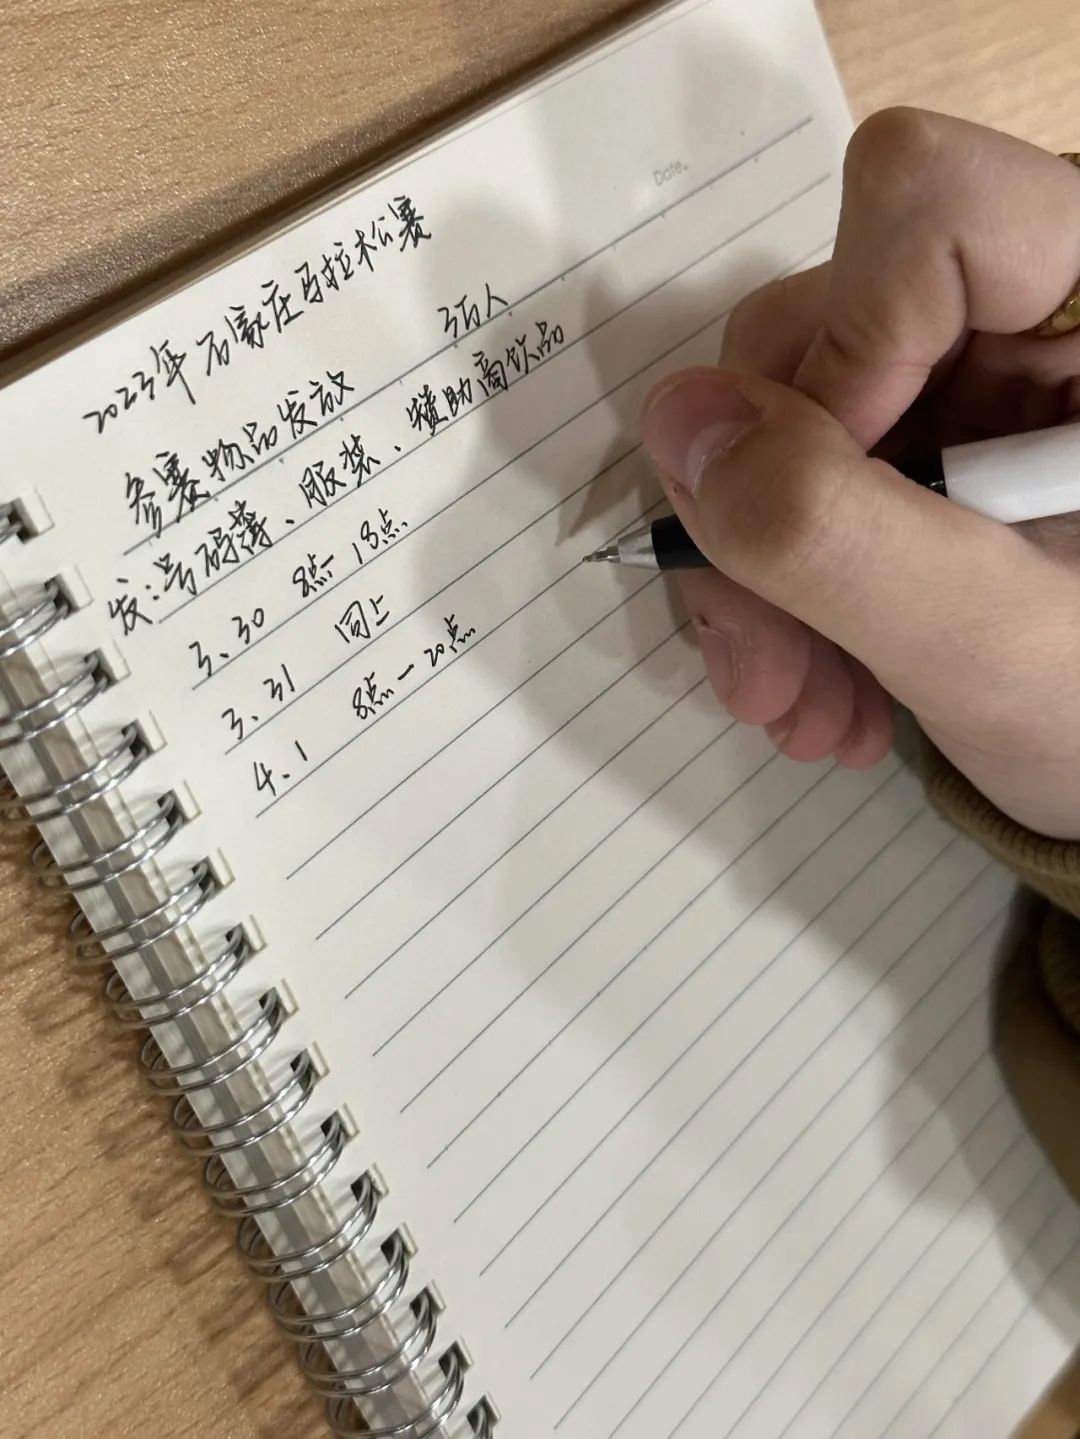 Date.
2023年石家庄马拉松赛
参赛物品发放 3万人
发:号码薄、服装、赞助商饮品
3.30 8点-18点
3.31 同上
4.1 8点-20点